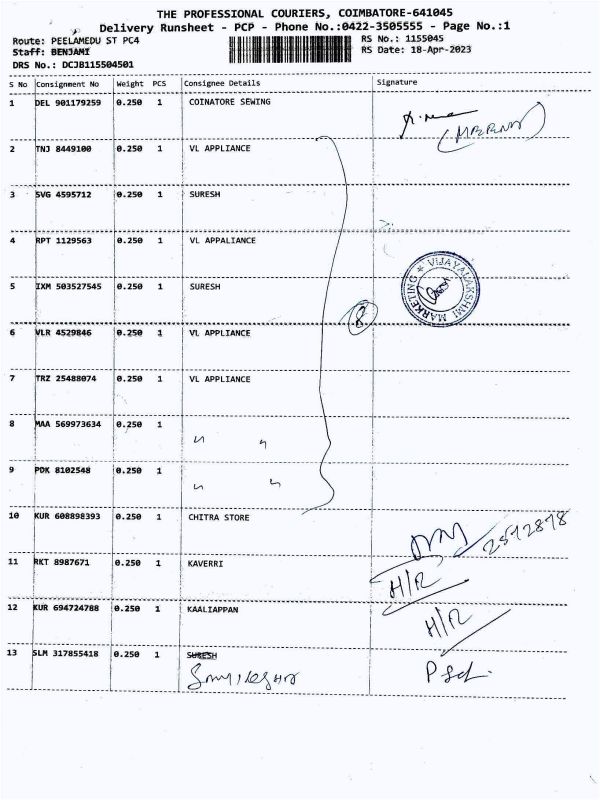 THE PROFESSIONAL COURIERS, COIMBATORE-641045
Delivery Runsheet - PCP - Phone No.:0422-3505555 - Page No.:1
Route: PEELAMEDU ST PC4
RS No.: 1155045
Staff: BENJAMI
RS Date: 18-Apr-2023
DRS No.: DCJB115504501
S No Consignment No Weight PCS Consignee Details Signature
1 DEL 901179259 0.250 1 COINATORE SEWING
2 TNJ 8449100 0.250 1 VL APPLIANCE
3 SVG 4595712 0.250 1 SURESH
4 RPT 1129563 0.250 1 VL APPALIANCE
5 IXM 503527545 0.250 1 SURESH
VIJAYALAKSHMI MARKETING
8
6 VLR 4529846 0.250 1 VL APPLIANCE
7 TRZ 25488074 0.250 1 VL APPLIANCE
8 MAA 569973634 0.250 1
9 PDK 8102548 0.250 1
10 KUR 608898393 0.250 1 CHITRA STORE
11 RKT 8987671 0.250 1 KAVERRI
H/R
12 KUR 694724788 0.250 1 KAALIAPPAN
H/R
13 SLM 317855418 0.250 1 SURESH